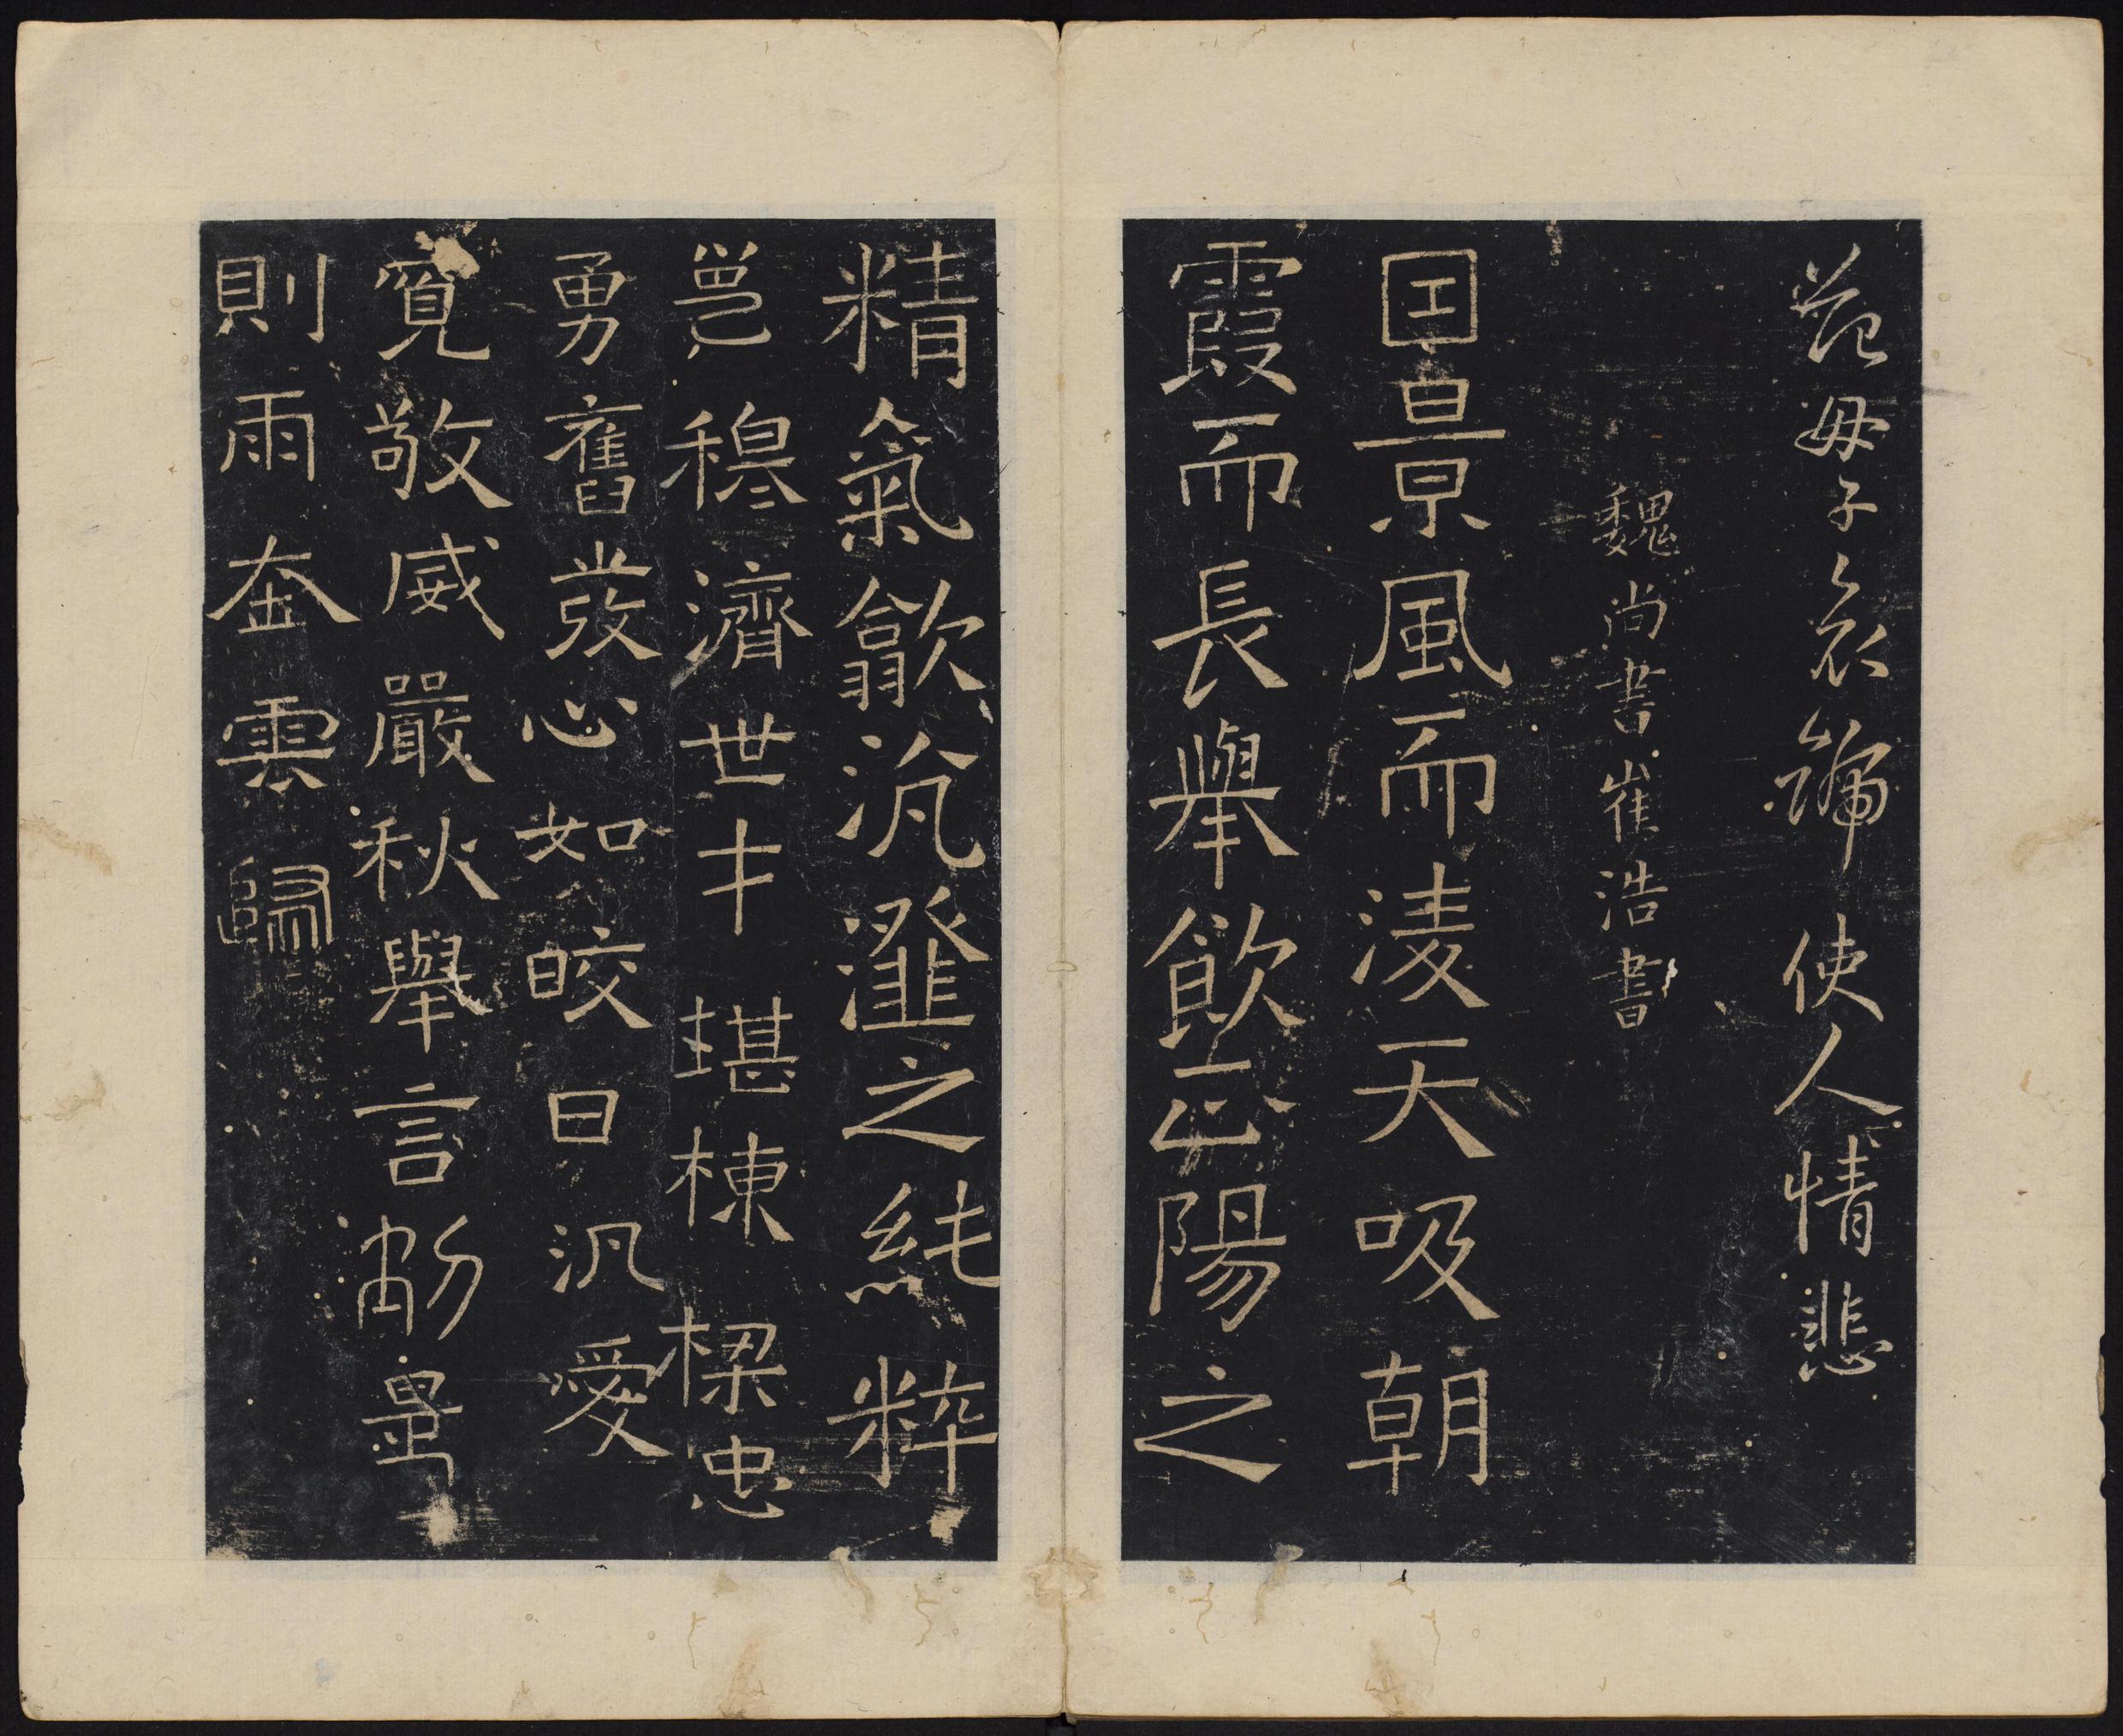 范母子哀啼使人情悲
魏尚書崔浩書
景風而淩天吸朝
霞而長舉飲正陽之
精氣歙沆瀣之純粹
邕穆濟世才堪棟樑忠
勇舊發心如皎日汎愛
寬敬威嚴秋舉言
則雨奎雲歸